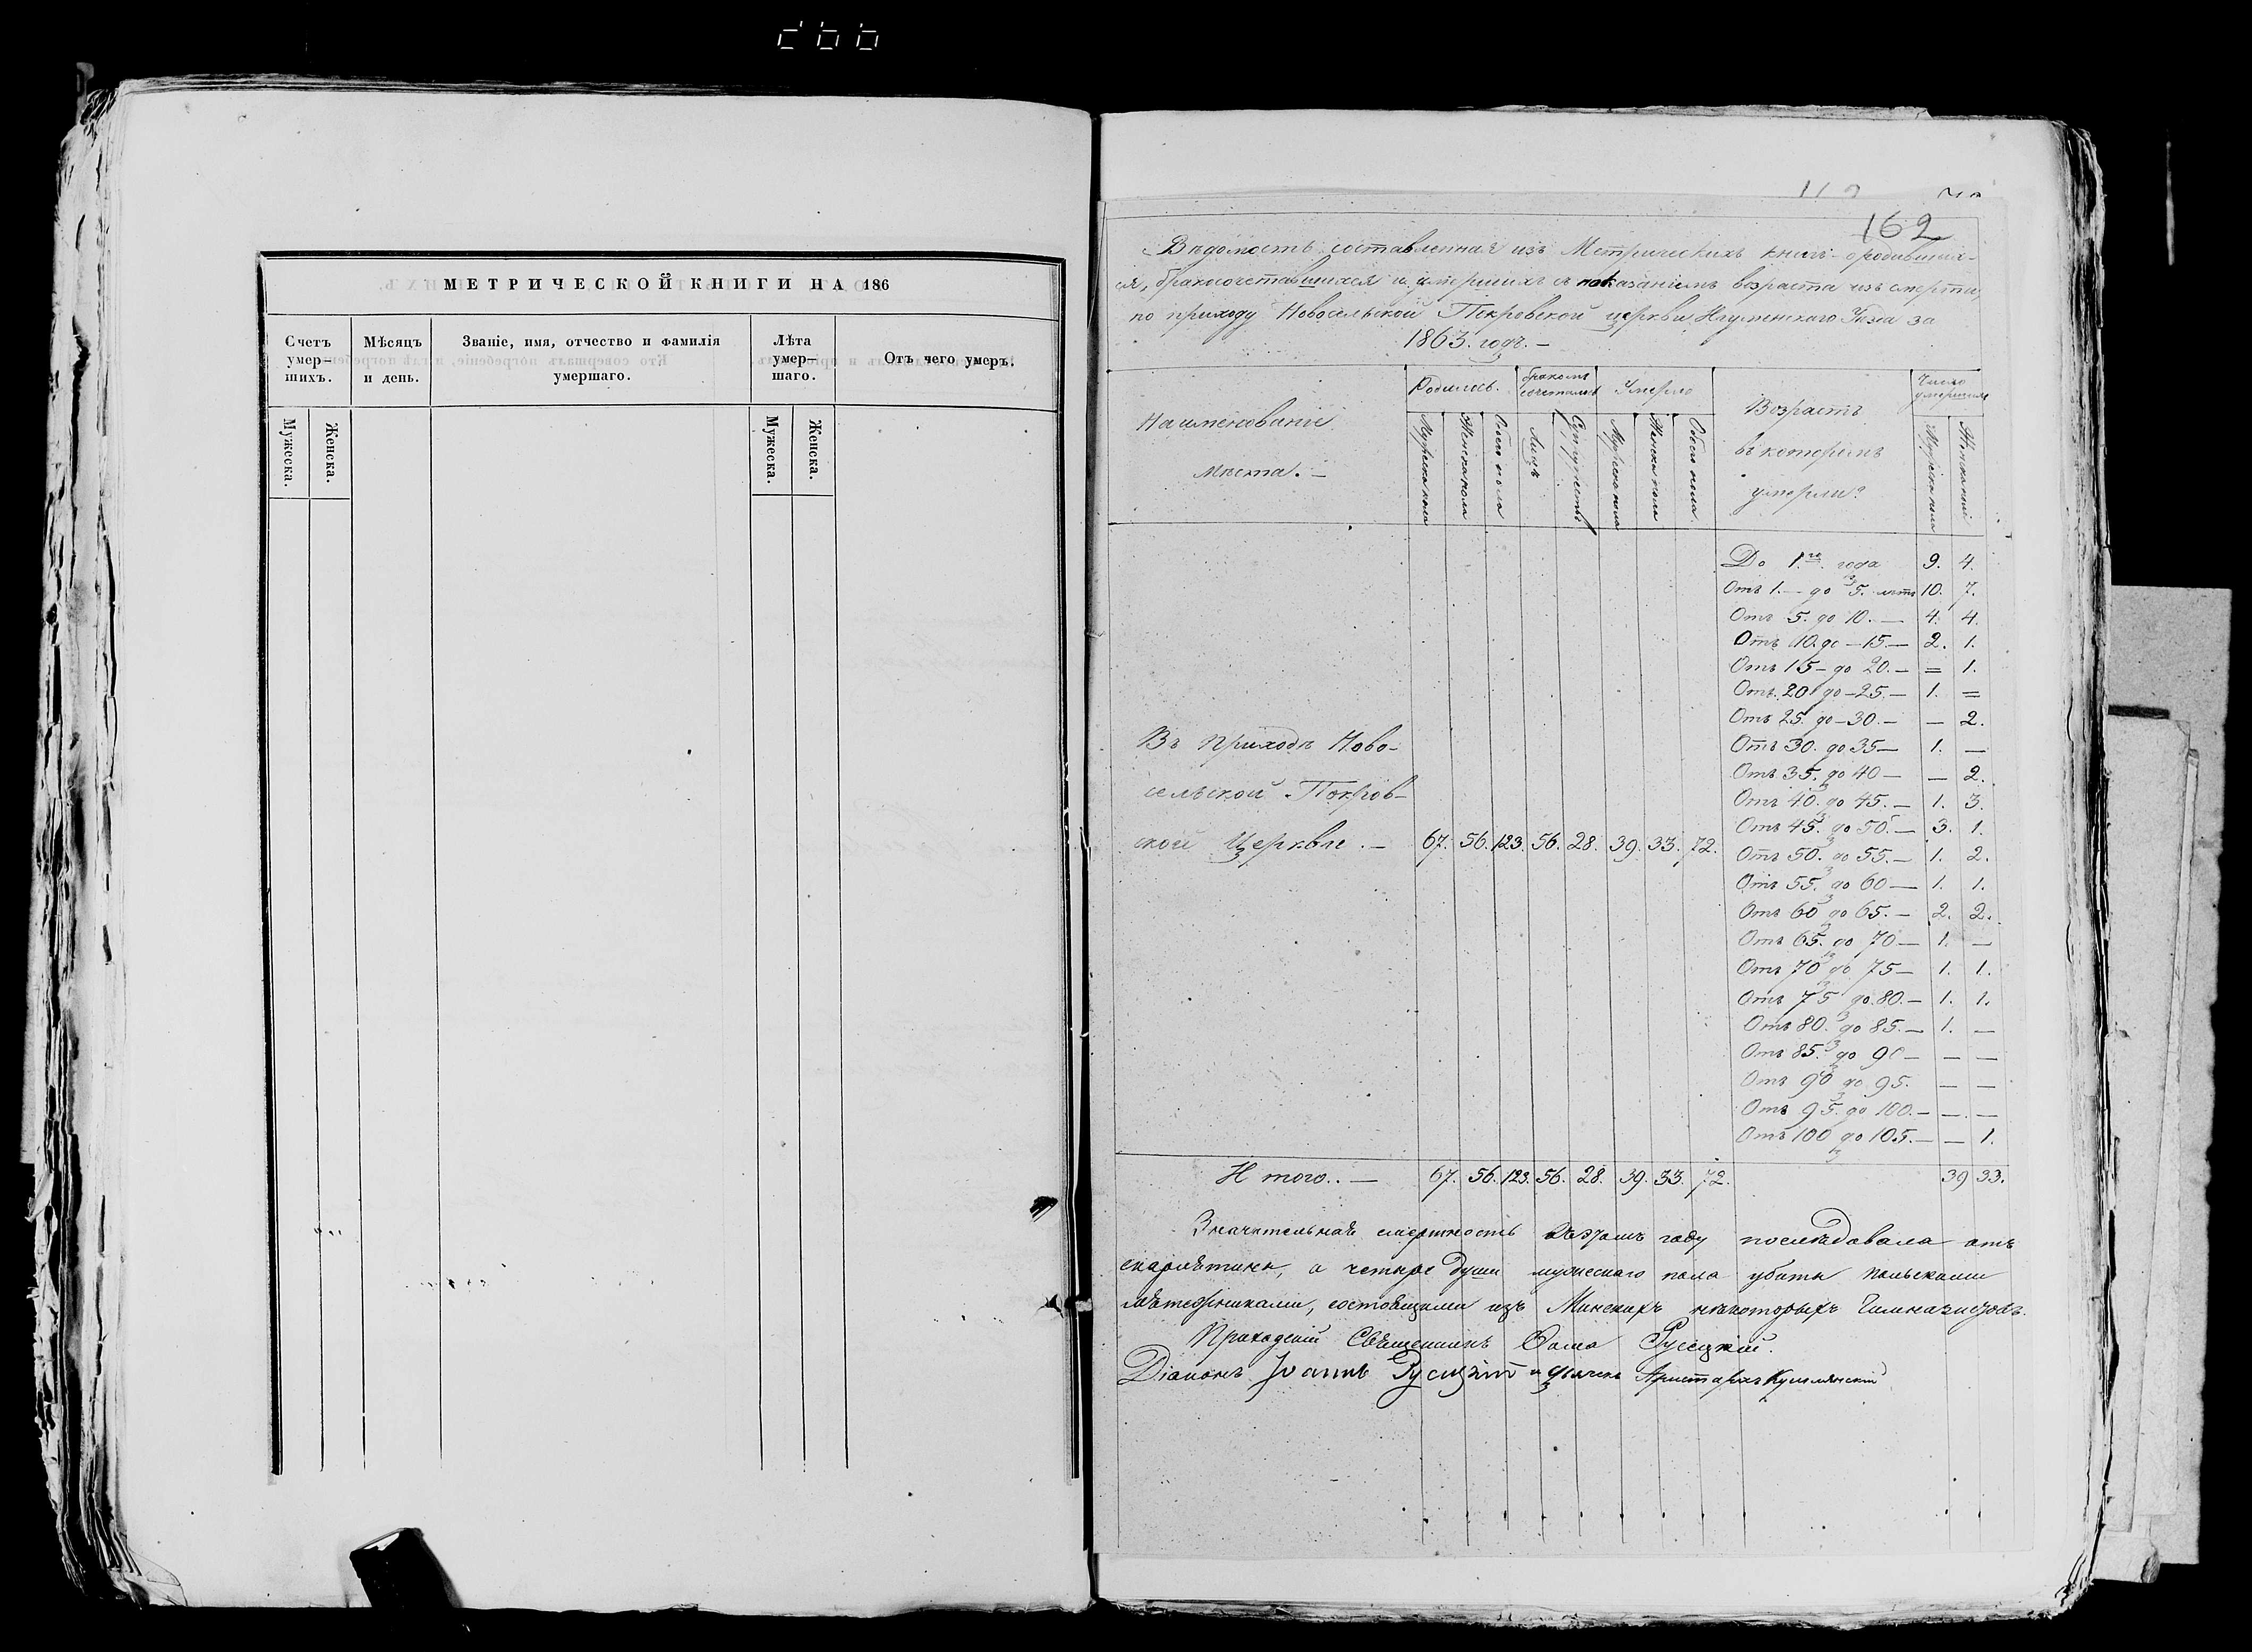 МЕТРИЧЕСКОЙ КНИГИ НА 186
Счетъ умер-шихъ.
Мѣсяцъ и день.
Званіе, имя, отчество и фамилія умершаго.
Лѣта умер-шаго.
Отъ чего умеръ.
Мужеска.
Женска.
Мужеска.
Женска.
162
Вѣдомость составленная изъ Метрическихъ книгъ о родивших-
ся, бракосочетавшихся и умершихъ съ показаніемъ возраста ихъ смерти,
по приходу Новосельской Покровской церкви Игуменскаго Уѣзда за
1863. годъ. —
Наименованіе
Мѣста. —
Родилось.
бракомъ сочеталось
Умерло
Возрастъ
въ которомъ
умерли?
Число умершихъ
Мужеска пола
Женска пола
Обоего пола
Лицъ
Супружествъ
Мужеска пола
Женска пола
Обоего пола
Мужеска пола
До 1.го года 9. 4.
Отъ 1. — до 5. лѣтъ 10. 7.
Отъ 5. до 10. — 4. 4.
Отъ 10. до — 15. — 2. 1.
Отъ 15 — до 20. — = 1.
Отъ 20 до — 25. — 1. =
Отъ 25. до — 30. — — 2.
Отъ 30. до 35 — 1. —
Отъ 35. до 40 — — 2.
Отъ 40. до 45. — 1. 3.
Отъ 45. до 50. — 3. 1.
Отъ 50. до 55. — 1. 2.
Отъ 55. до 60 — 1. 1.
Отъ 60 до 65. — 2. 2.
Отъ 65. до 70 — 1. —
Отъ 70 до 75 — 1. 1.
Отъ 75 до 80. — 1. 1.
Отъ 80. до 85. — 1. —
Отъ 85. до 90 — — —
Отъ 90 до 95. — —
Отъ 95. до 100. — — —
Отъ 100 до 105. — — 1.
Въ приходѣ Ново-
сельской Покров-
ской Церкви. — 67. 56. 123. 56. 28. 39. 33. 72.
И того.. — 67. 56. 123. 56. 28. 39. 33. 72. 39 33.
Значительная смертность въ этомъ году послѣдовала отъ
скарлятины, а четыре души мужескаго пола убиты польскими
мятежниками, состоящими изъ Минскихъ нѣкоторыхъ Гимназистовъ.
Приходскій Священникъ Ѳома Русецкій.
Діаконъ Іоаннъ Русецкій и дьячекъ Аристархъ